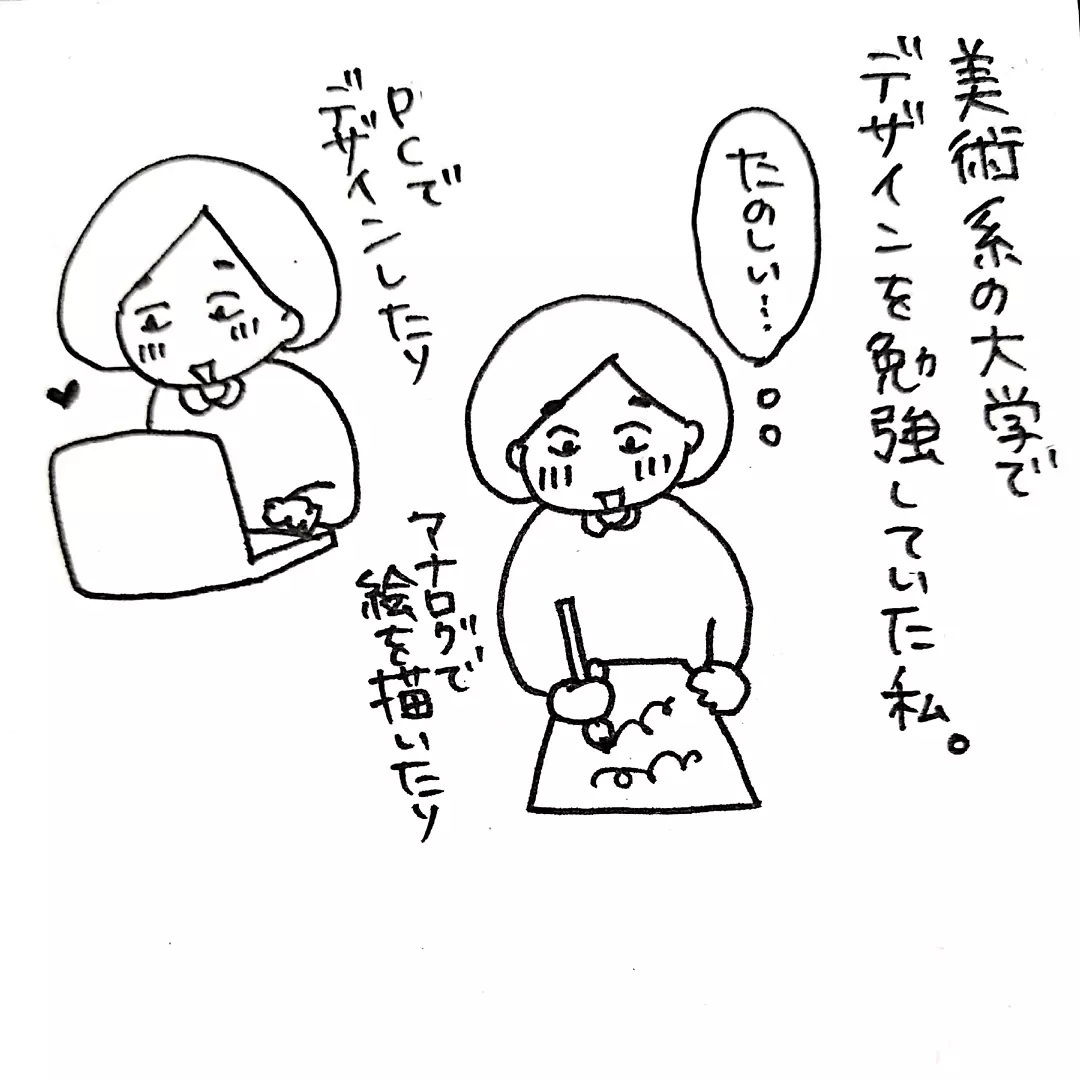 美術系の大学で
デザインを勉強していた私。
たのしい…
PCで
デザインしたり
アナログで
絵を描いたり